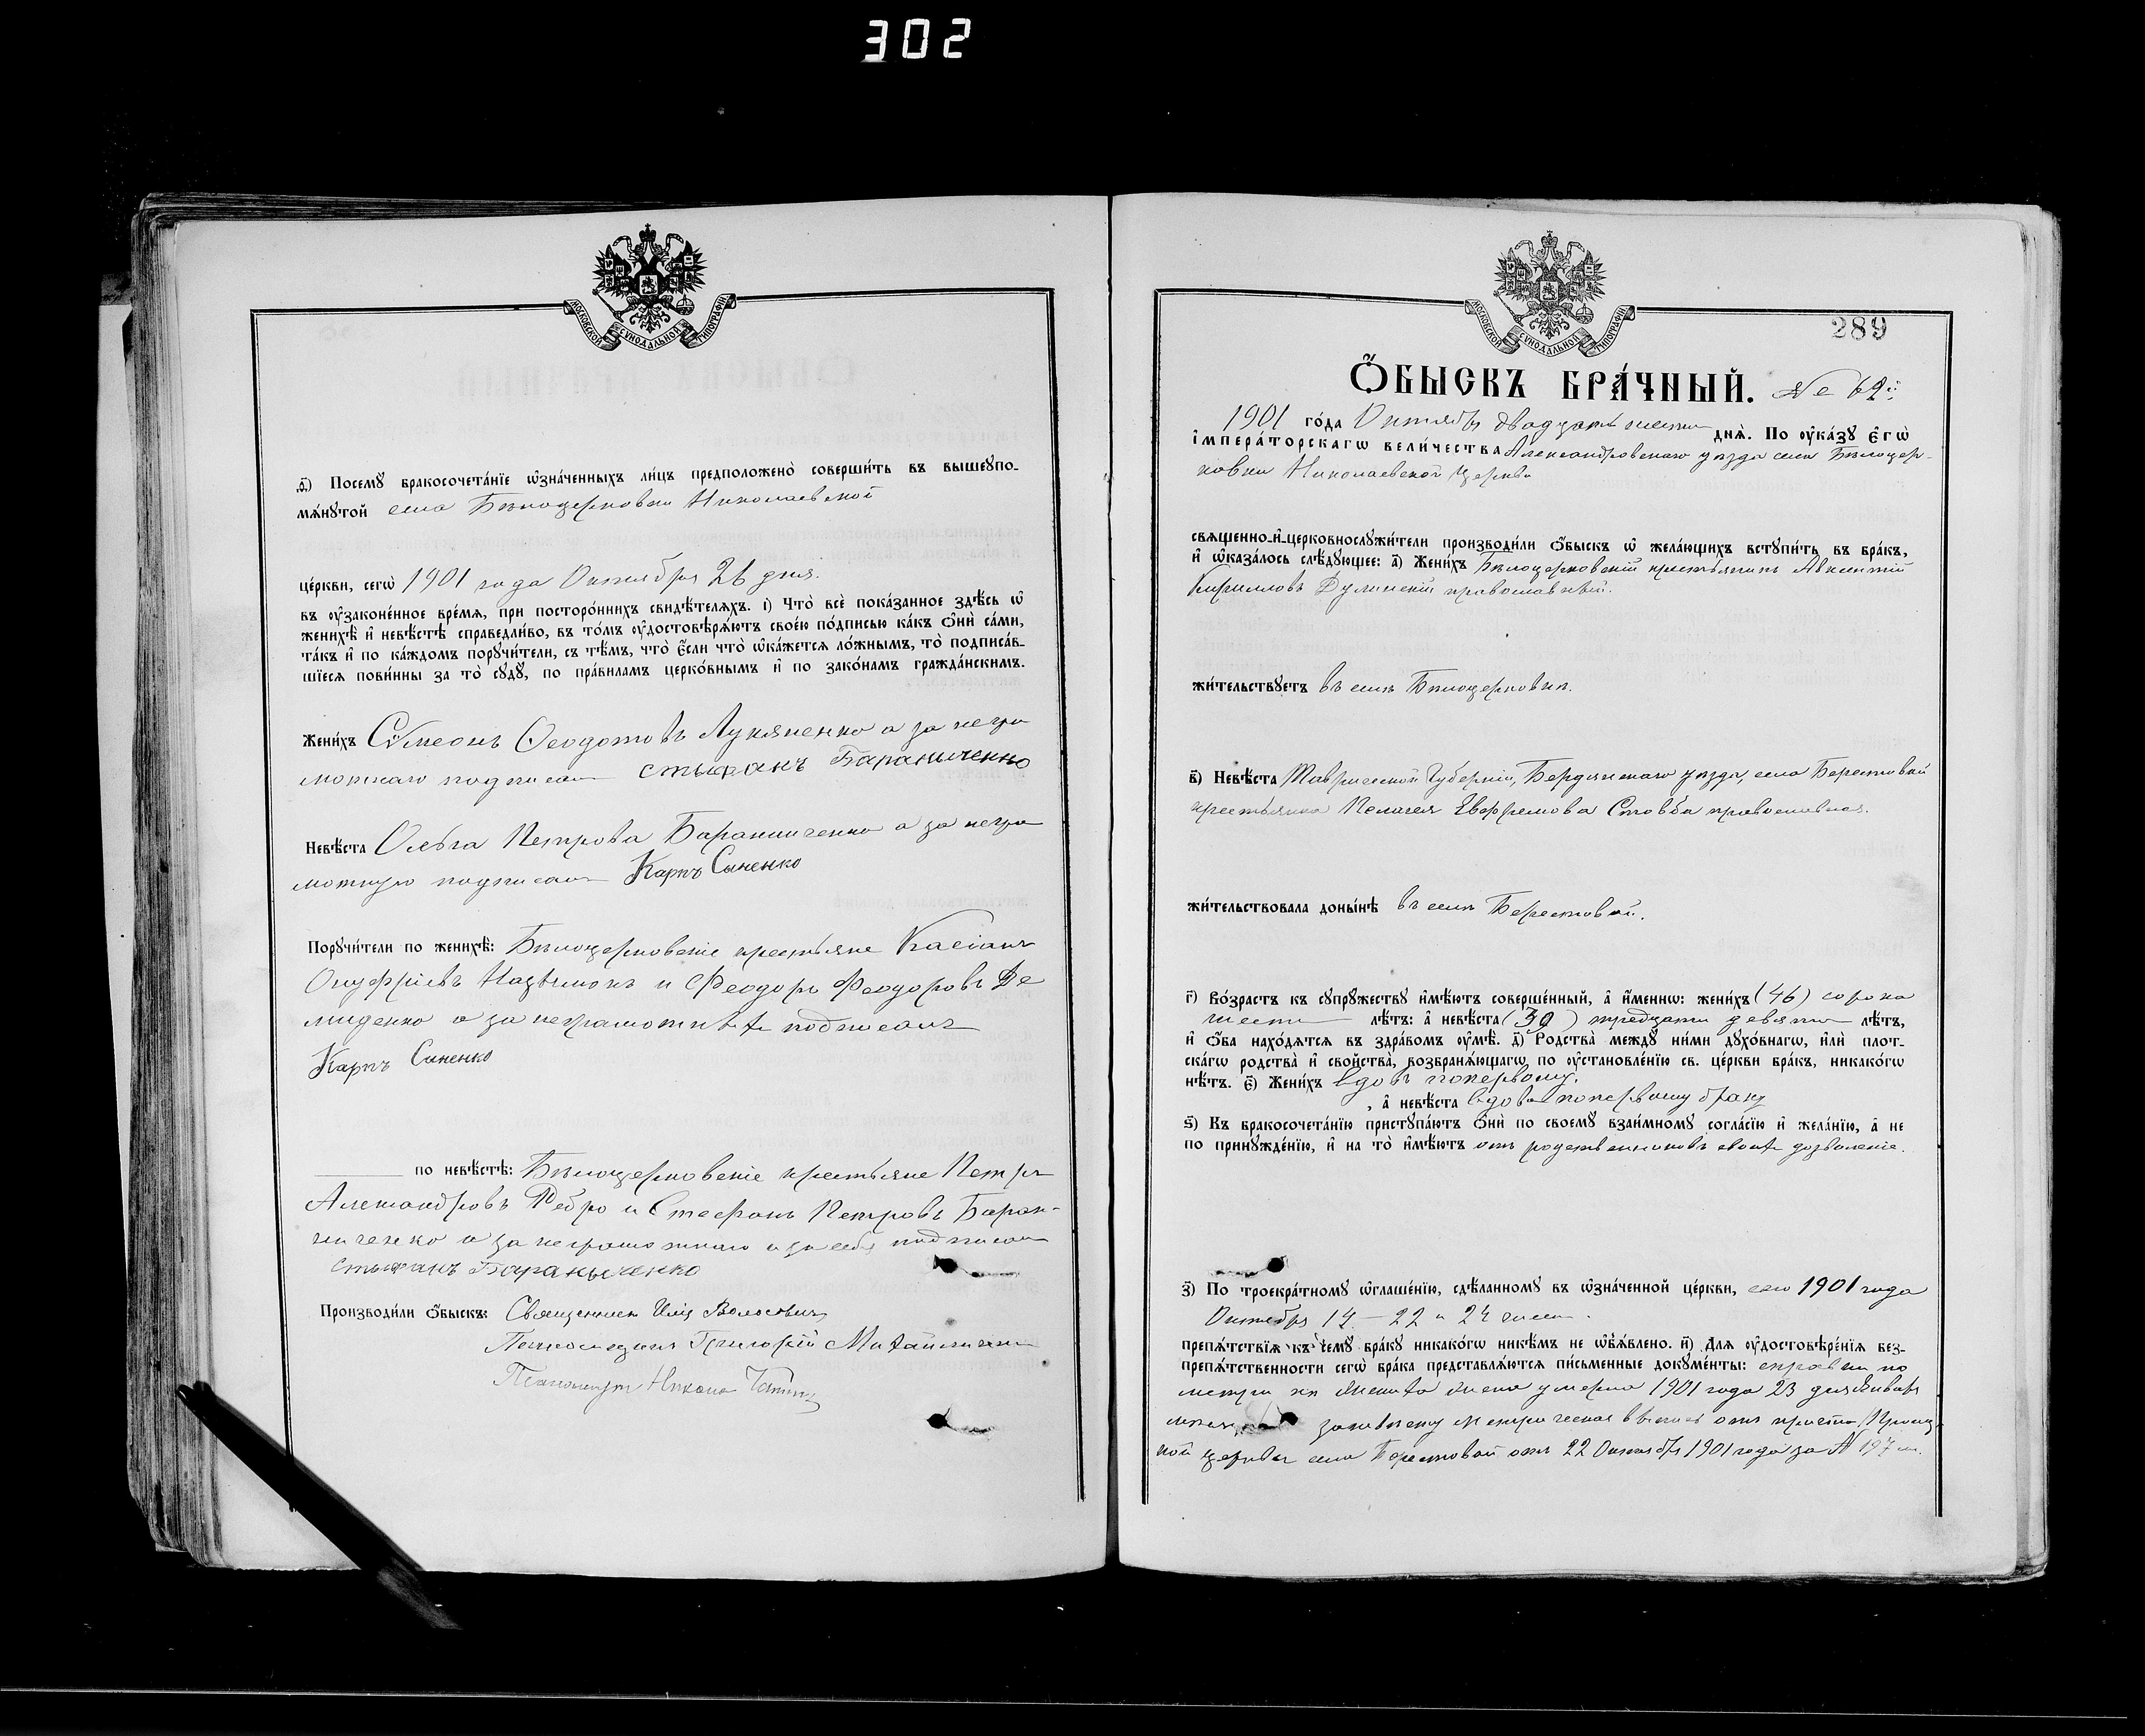 302
МОСКОВСКОЙ СѴНОДАЛЬНОЙ ТИПОГРАФІИ
ѳ҃) Посемꙋ бракосочета́нїе ѡ҆зна́ченныхъ ли́цъ предположено̀ соверши́ть въ вышеꙋпо-
мѧ́нꙋтой села Бѣлоцерковки Николаевской
це́ркви, сегѡ̀ 1901 года Октября 26 дня.
въ ᲂу҆законе́нное вре́мѧ, при посторо́ннихъ свидѣ́телѧхъ. і҃) Что̀ всѐ пока́занное здѣ́сь ѡ҆
женихѣ̀ и҆ невѣ́стѣ справедли́во, въ то́мъ ᲂу҆достовѣрѧ́ютъ свое́ю по́дписью ка́къ ѻ҆нѝ са́ми,
та́къ и҆ по ка́ждомъ порꙋчи́тели, съ тѣ́мъ, что̀ є҆́сли что̀ ѡ҆ка́жетсѧ ло́жнымъ, то̀ подписа́в-
шїесѧ пови́нны за то̀ сꙋдꙋ̀, по пра́виламъ церко́внымъ и҆ по зако́намъ гражда́нскимъ.
Жени́хъ Сѵмеонъ Ѳеодотовъ Лукяненко а за негра
мотнаго подписал стыфанъ Бараныченко
Невѣ́ста Ольга Петрова Бараниченко а за негра
мотную подписалъ Карпъ Синенко
Порꙋчи́тели по женихѣ̀: Бѣлоцерковскіе крестьяне Касіанъ
Онуфріевъ и Феодоръ Феодоровъ Де
миденко а за неграмотныхъ подписалъ
Карпъ Синенко
по невѣ́стѣ: Бѣлоцерковскіе крестьяне Петръ
Александровъ Ребро и Стефанъ Петровъ Баран-
ниченко а за неграмотнаго и за себя подписал
стыфанъ Бараныченко
Производи́ли ѻ҆́быскъ: Священникъ Илія Волосевич
Псаломщикъ Григорій
Псаломщикъ Никола
МОСКОВСКОЙ СѴНОДАЛЬНОЙ ТИПОГРАФІИ
289
Ѻ҆́БЫСКЪ БРА́ЧНЫЙ. № 62й
1901 го́да Октября двадцать шести днѧ̀. По ᲂу҆ка́зꙋ є҆гѡ̀
і҆мпера́торскагѡ вели́чества Александровскаго уѣзда села Бѣлоцер-
ковки Николаевской Церкви
свѧщенно-и҆-церковнослꙋжи́тели производи́ли ѻ҆́быскъ ѡ҆ жела́ющихъ встꙋпи́ть въ бра́къ,
и҆ ѡ҆каза́лось слѣ́дꙋющее: а҃) Жени́хъ Бѣлоцерковскій крестьянинъ Авксентій
Кирилловъ Думинскій православный.
жи́тельствꙋетъ въ селѣ Бѣлоцерковкѣ.
в҃) Невѣ́ста Таврической Губерніи, Бердянскаго уѣзда, села Берестовой
крестьянка Пелагея Евфремова Стовба православная.
жи́тельствовала доны́нѣ въ селѣ Берестовой.
г҃) Во́зрастъ къ сꙋпрꙋ́жествꙋ и҆мѣ́ютъ соверше́нный, а҆ и҆́меннѡ: жени́хъ (46) сорока
шести лѣ́тъ: а҆ невѣ́ста (39) тридцати девяти лѣ́тъ,
и҆ ѻ҆́ба нахо́дѧтсѧ въ здра́вомъ ᲂу҆мѣ̀. д҃) Родства̀ междꙋ̀ ни́ми дꙋхо́внагѡ, и҆лѝ плот-
ска́гѡ родства̀ и҆ сво́йства̀, возбранѧ́ющагѡ, по ᲂу҆становле́нїю св. це́ркви бра́къ, никако́гѡ
нѣ́тъ. є҃) Жени́хъ вдовъ поперьвому,
, а҆ невѣ́ста вдова поперьвому браку
ѕ҃) Къ бракосочета́нїю пристꙋпа́ютъ ѻ҆нѝ по своемꙋ̀ взаи́мномꙋ согла́сїю и҆ жела́нїю, а҆ не
по принꙋжде́нїю, и҆ на то̀ и҆мѣ́ютъ отъ родственниковъ своихъ дозволеніе.
з҃) По троекра́тномꙋ ѡ҆глаше́нїю, сдѣ́ланномꙋ въ ѡ҆зна́ченной це́ркви, сего 1901 года
Октября 14 – 22 и 24 числ.
препѧ́тствїѧ къ семꙋ̀ бра́кꙋ никако́гѡ никѣ́мъ не ѡ҆б̾ѧ́влено. и҃) Длѧ̀ ᲂу҆достовѣре́нїѧ без-
препѧ́тственности сегѡ̀ бра́ка представлѧ́ютсѧ пи́сьменные докꙋме́нты: справки по
метри жена умерла 1901 года 23 дня Январ
метрическая отъ
ной церкви села Берестовой отъ 22 Октября 1901 года за № 197 м.